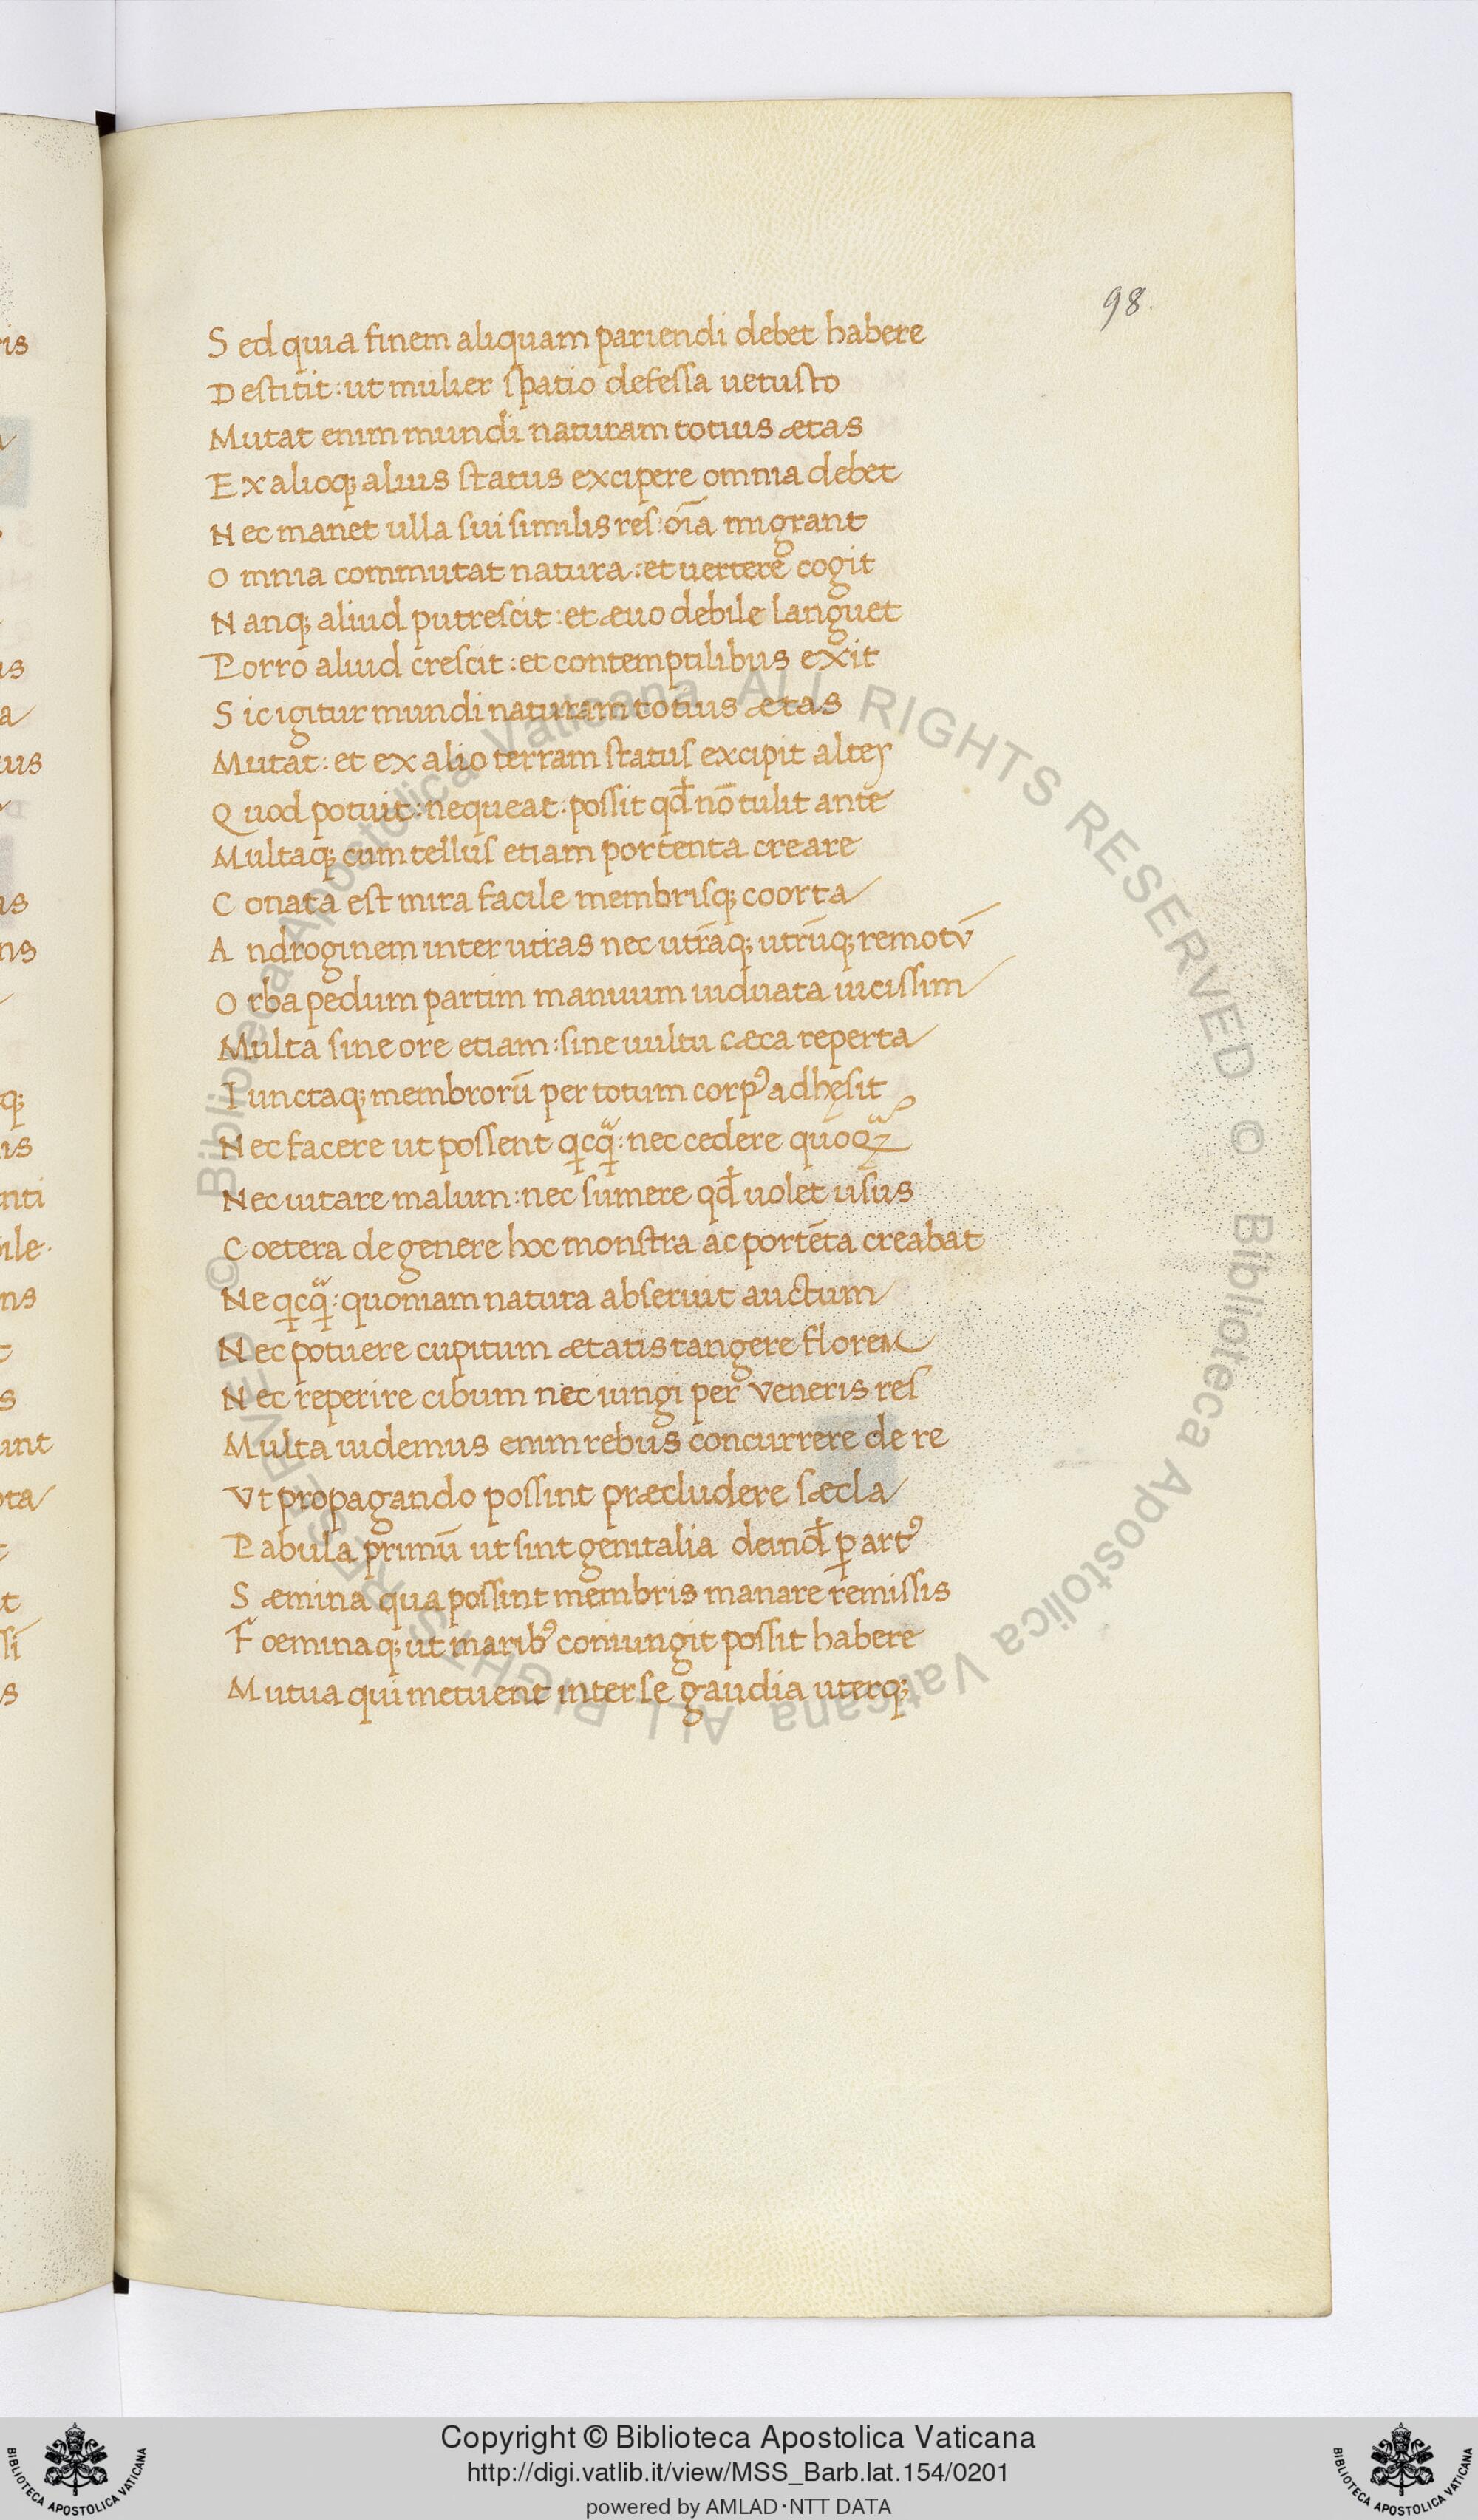 98.
Sed quia finem aliquam pariendi debet habere
Destitit: ut mulier spatio defessa uetusto
Mutat enim mundi naturam totius ætas
Ex alioq; alius status excipere omnia debet
Nec manet ulla sui similis res: oīa migrant
Omnia commutat natura: et uertere cogit
Nanq; aliud putrescit: et æuo debile languet
Porro aliud crescit: et contemptilibus exit
Sic igitur mundi naturam totius ætas
Mutat: et ex alio terram status excipit alter
Quod potuit: nequeat: possit qđ nō tulit ante
Multaq; cum tellus etiam portenta creare
Conata est mira facile membrisq; coorta
Androginem inter utras nec utrāq; utrūq; remotū
Orba pedum partim manuum uiduata uicissim
Multa sine ore etiam: sine uultu cæca reperta
Iunctaq; membrorū per totum corpꝰ adhęsit
Nec facere ut possent qcq̃: nec cedere quoq̃
Nec uitare malum: nec sumere qđ uolet usus
Coetera de genere hoc monstra ac portēta creabat
Ne qcq̃: quoniam natura abseruit auctum
Nec potuere cupitum ætatis tangere florem
Nec reperire cibum nec iungi per Veneris res
Multa uidemus enim rebus concurrere de re
Vt propagando possint præcludere sæcla
Pabula primū ut sint genitalia deinđ ꝑ artꝰ
Sæmina qua possint membris manare remissis
Foeminaq; ut maribꝰ coniungit possit habere
Mutua qui metuent inter se gaudia uterq;
© Biblioteca Apostolica Vaticana ALL RIGHTS RESERVED © Biblioteca Apostolica Vaticana ALL RIGHTS RESERVED
Copyright © Biblioteca Apostolica Vaticana
http://digi.vatlib.it/view/MSS_Barb.lat.154/0201
powered by AMLAD·NTT DATA
BIBLIOTECA APOSTOLICA VATICANA
BIBLIOTECA APOSTOLICA VATICANA